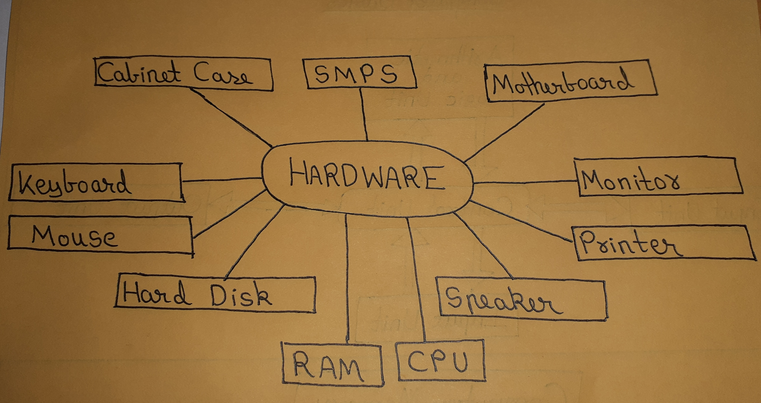 Cabinet Case
SMPS
Motherboard
HARDWARE
Keyboard
Monitor
Mouse
Printer
Hard Disk
Speaker
RAM
CPU